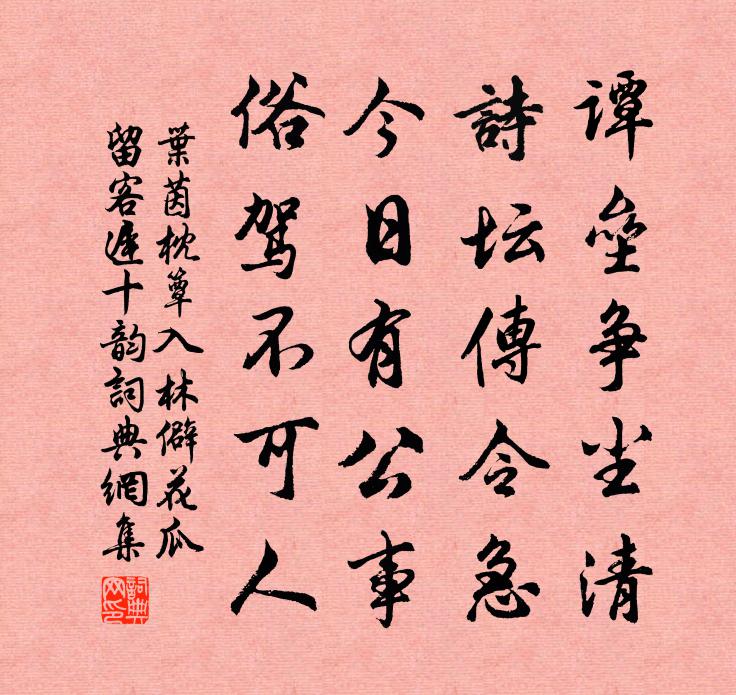 譚垒争坐清
詩坛傳令急
今日有公事
俗駕不可人
葉茵枕簟入林僻花瓜
留客遲十韵詞典網集
詞典
网印